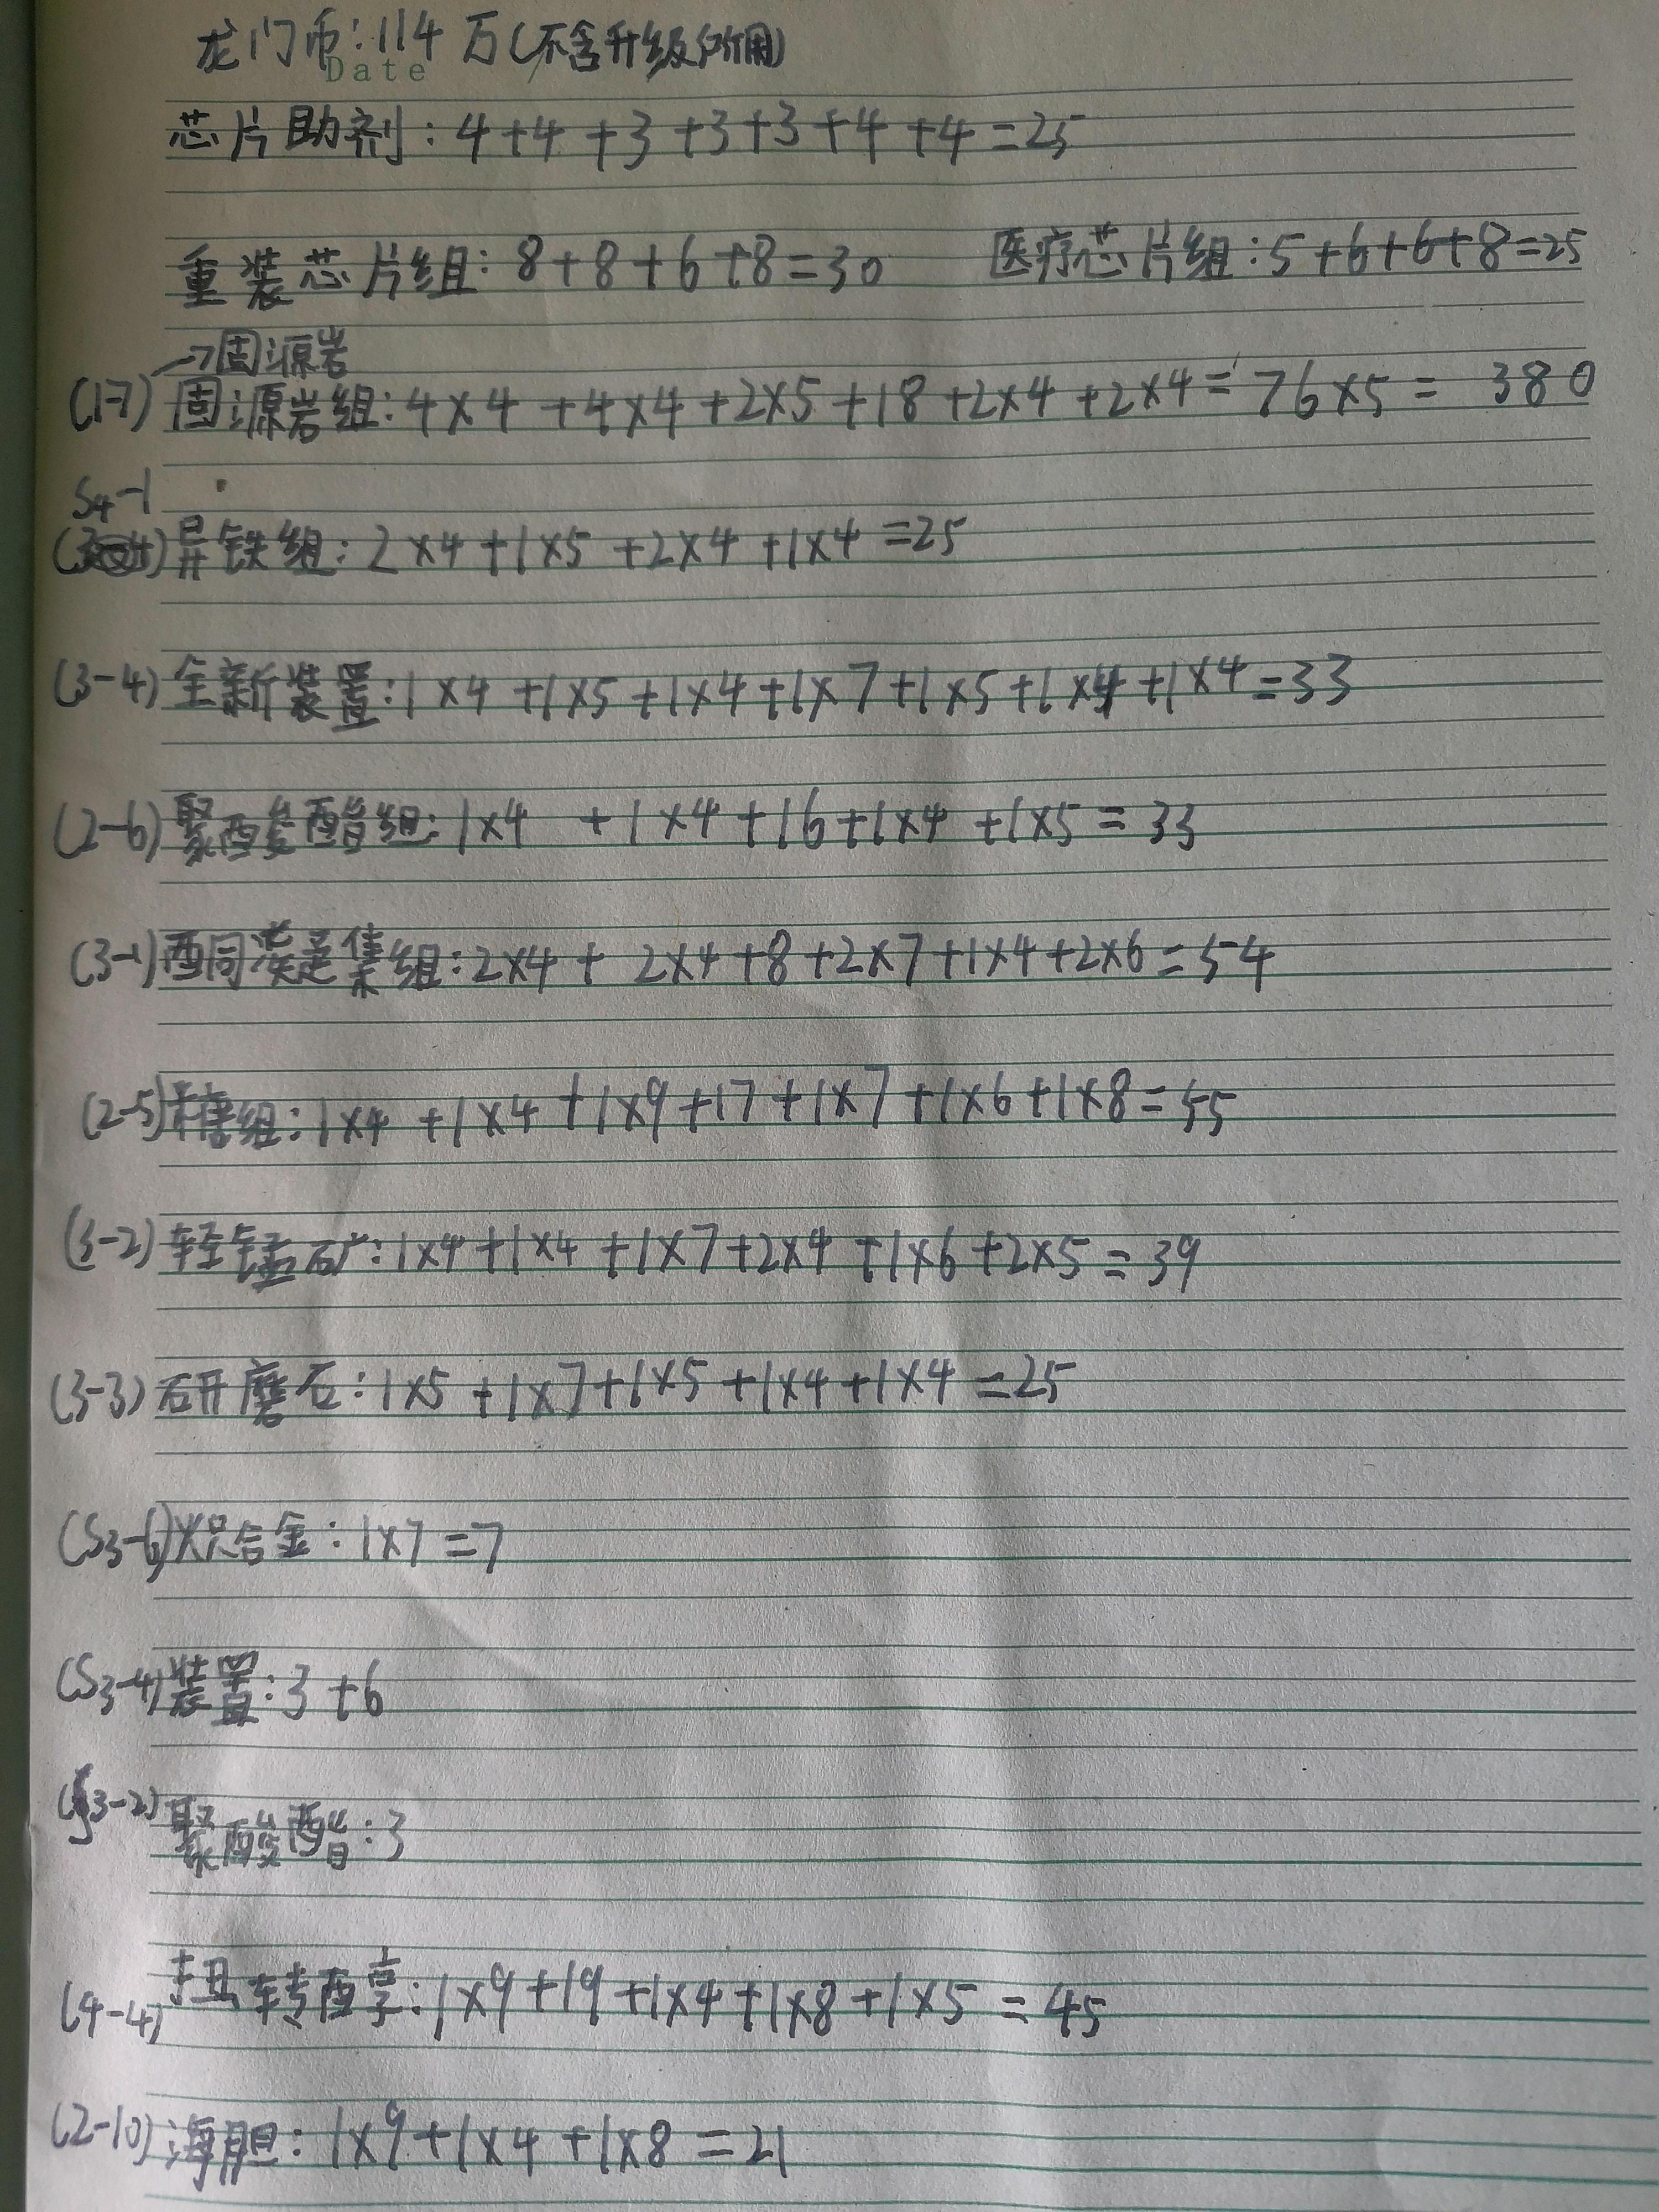 龙门币:114万(不含升级所用)
Date
芯片助剂:4+4+3+3+3+4+4=25
重装芯片组:8+8+6+8=30 医疗芯片组:5+6+6+8=25
→固源岩
(1-7)固源岩组:4×4+4×4+2×5+18+2×4+2×4=76×5=380
S4-1
异铁组:2×4+1×5+2×4+1×4=25
(3-4)全新装置:1×4+1×5+1×4+1×7+1×5+1×4+1×4=33
(2-6)聚酸酯组:1×4+1×4+16+1×4+1×5=33
(3-1)酮凝集组:2×4+2×4+8+2×7+1×4+2×6=54
(2-5)糖组:1×4+1×4+1×9+17+1×7+1×6+1×8=55
(3-2)轻锰矿:1×4+1×4+1×7+2×4+1×6+2×5=39
(3-3)研磨石:1×5+1×7+1×5+1×4+1×4=25
(S3-6)炽合金:1×7=7
(S3-4)装置:3+6
(S3-2)聚酸酯:3
(4-4)扭转醇:1×9+19+1×4+1×8+1×5=45
(2-10)海胆:1×9+1×4+1×8=21